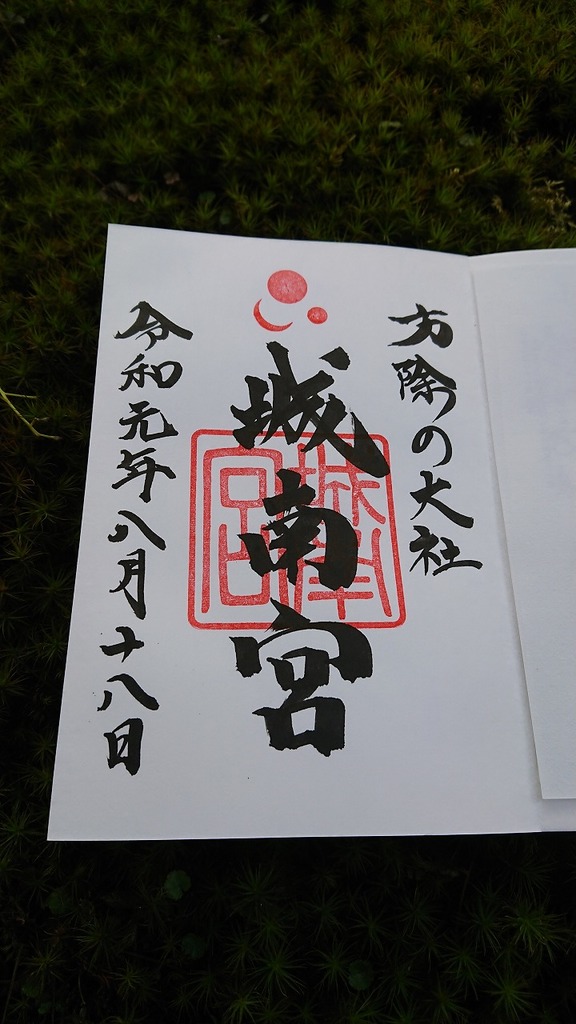 方除の大社
城南宮
城南宮
令和元年八月十八日